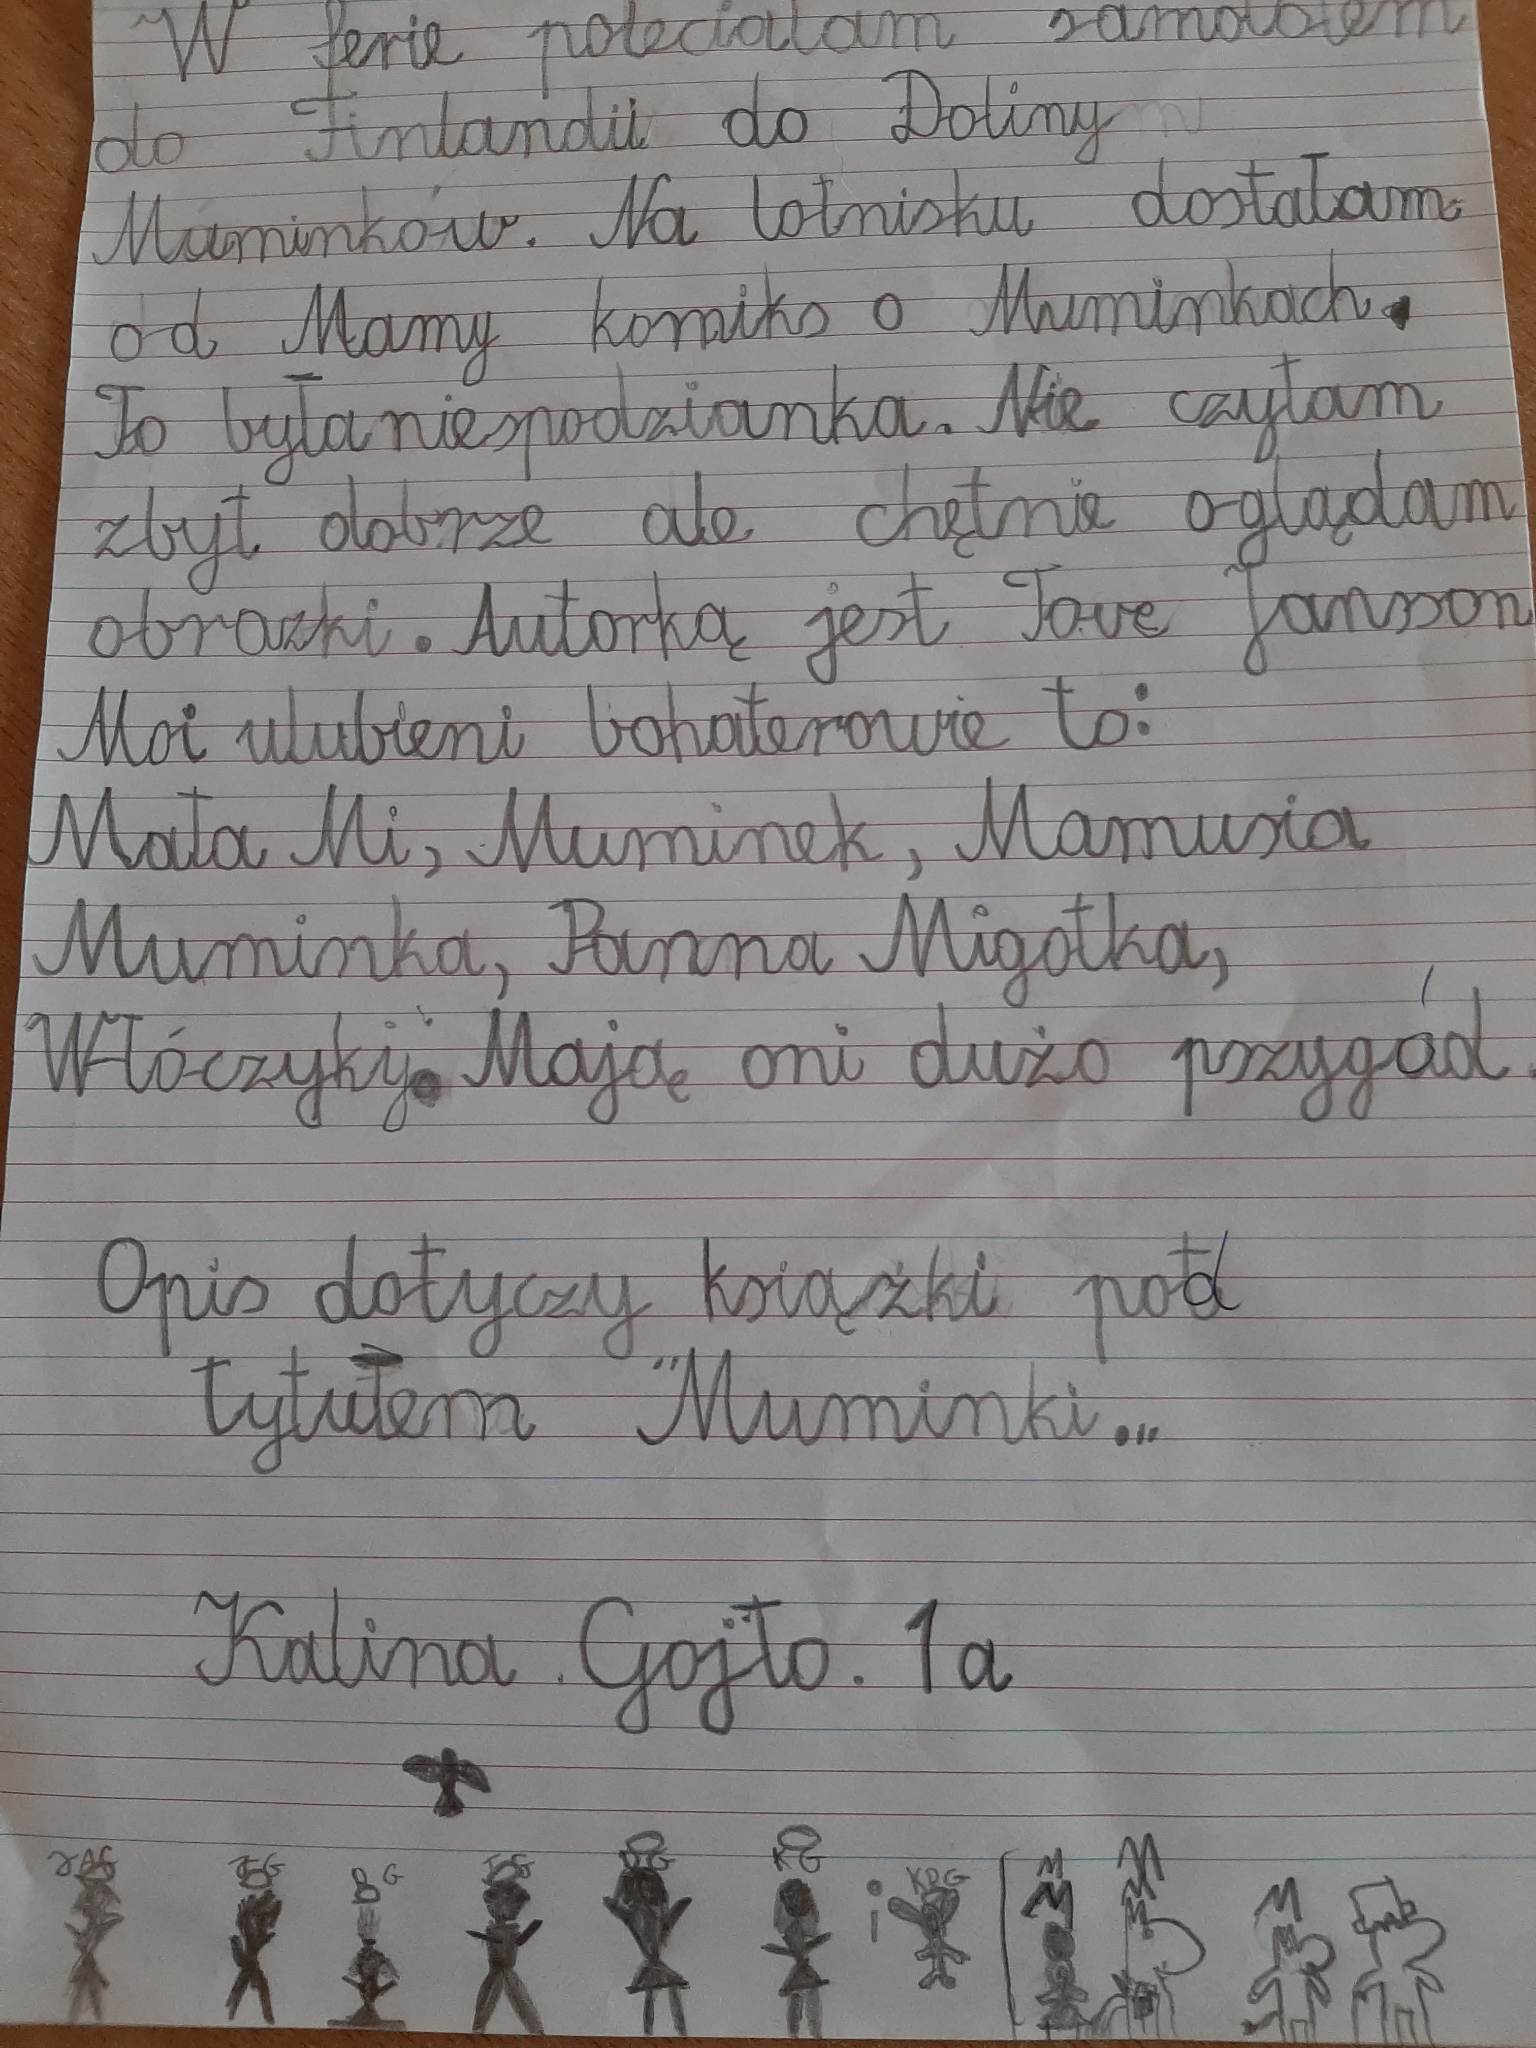 W ferie poleciałam samolotem
do Finlandii do Doliny
Muminków. Na lotnisku dostałam
od Mamy komiks o Muminkach.
To byłaniespodzianka. Nie czytam
zbyt dobrze ale chętnie oglądam
obrazki. Autorką jest Tove Jansson
Moi ulubieni bohaterowie to:
Mała Mi, Muminek, Mamusia
Muminka, Panna Migotka,
Włóczykij. Mają oni dużo przygód.
Opis dotyczy książki pod
tytułem "Muminki..."
Kalina Gojło. 1a
BG KG i KDG